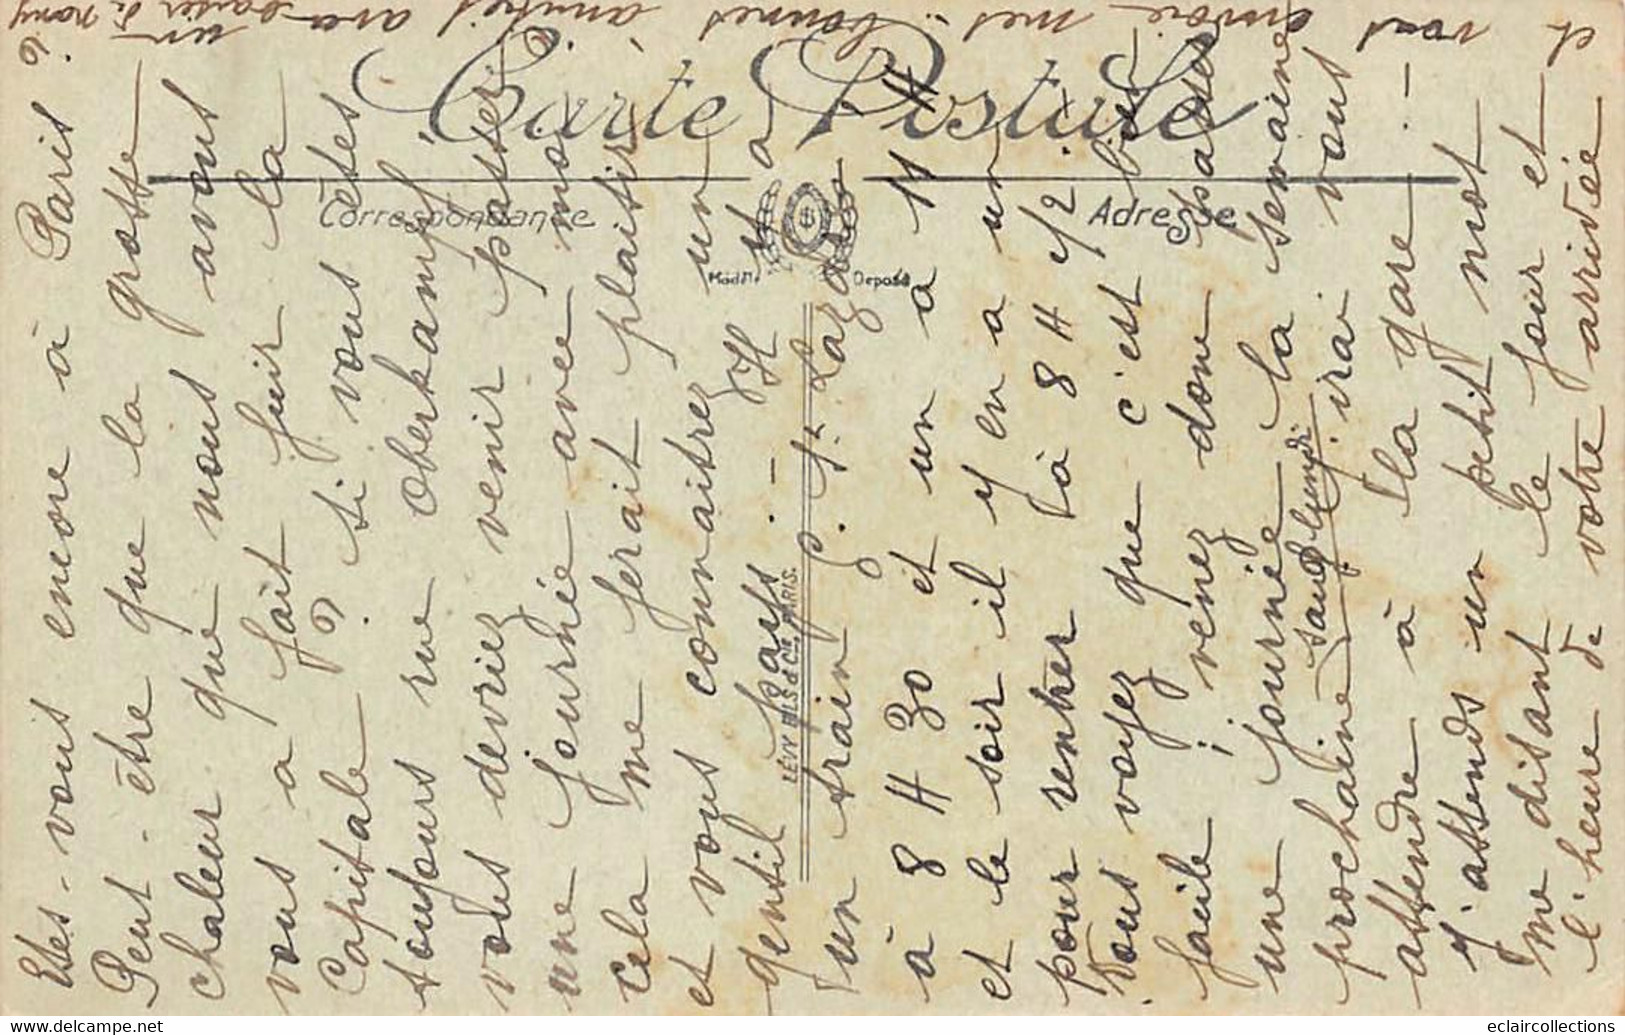 Etes-vous encore à Paris ?
Peut-être que la grosse
chaleur que nous avons
vous a fait fuir la
Capitale ? si vous êtes
toujours rue Oberkampf,
vous devriez venir passer
une journée avec moi
cela me ferait plaisir
et vous connaitrez un
gentil pays . - Il y a
un train g. St Lazare
à 8 H 30 et un à 11 H
et le soir il y en a un
pour rentrer à 8 H 1/2.
Vous voyez que c'est bien
facile ; venez donc passer
une journée la semaine
prochaine sauf lundi j'irai vous
attendre à la gare . -
J'attends un petit mot
me disant le jour et
l'heure de votre arrivée
et vous envoie mes bonnes amitiés
un
Carte Postale
Correspondance
Adresse
Modèle Déposé
LÉVY FILS & Cie PARIS.
eclaircollections